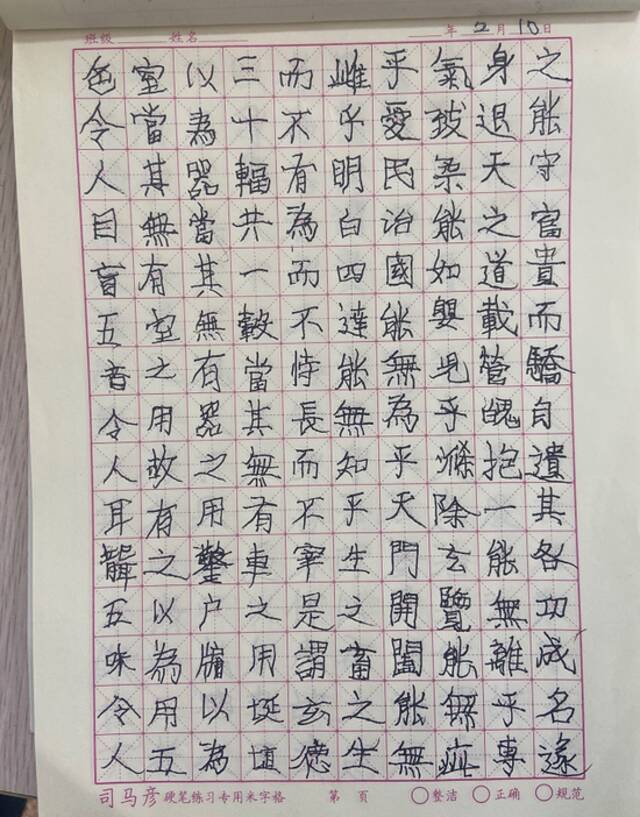 班级 姓名 年 2 月 10 日
之能守富貴而驕自遺其各功成名遂
身退天之道載營魄抱一能無離乎專
氣致柔能如嬰兒乎滌除玄覽能無疵
乎愛民治國能無為乎天門開闔能無
雌乎明白四達能無知乎生之畜之生
而不有為而不恃長而不宰是謂玄德
三十輻共一轂當其無有車之用埏埴
以為器當其無有器之用鑿户牖以為
室當其無有室之用故有之以為用五
色令人目盲五音令人耳聾五味令人
司马彦硬笔练习专用米字格 第 页 整洁 正确 规范